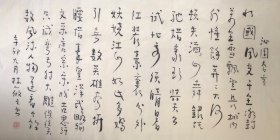 沁园春雪
北國風光千里冰封
萬里雪飄望長城内外
惟餘莽莽大河上下頓
失滔滔山舞銀蛇原
馳蜡象欲與天公
試比高須晴日看
紅裝素裹分外
妖嬈江山如此多嬌
引無數英雄競折
腰惜秦皇漢武略輸
文采唐宗宋祖稍遜
風騷一代天驕成吉思汗
只識彎弓射大雕俱往矣
數風流人物還看今朝
辛卯九月